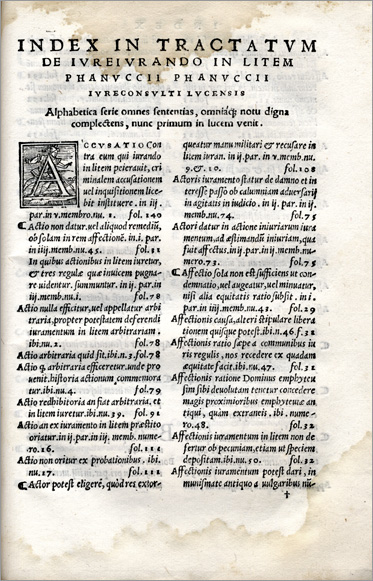 INDEX IN TRACTATVM
DE IVREIVRANDO IN LITEM
PHANVCCII PHANVCCII
IVRECONSVLTI LVCENSIS
Alphabetica serie omnes sententias, omniáq; notu digna
complectens, nunc primum in lucem venit.
ACCVSATIO Con
tra eum qui iurando
in litem peierauit, cri
minalem accusationem
uel inquisitionem lice-
bit instituere. in ij.
par. in v. membro. nu. 1. fol. 140
¶ Actio non datur. uel aliquod remediũ,
ob solam in rem affectionẽ. in i. par.
in iiij. memb. nu. 45. fol. 11
In quibus actionibus in litem iuretur,
& tres regulæ quæ inuicem pugna-
re uidentur. summuntur. in ij. par. in
iij. memb. nu. i. fol. 78
Actio nulla efficitur, uel appellatur arbi
traria, propter potestatem deferendi
iuramentum in litem arbitrariam.
ibi. nu. 2. fol. 78
Actio arbitraria quid sit. ibi. n. 3. fol. 78
Actio q. arbitraria efficeretur. unde pro
uenit. historia actionum, commemora
tur. ibi. nu. 4. fol. 79
Actio redhibitoria an fiat arbitraria, et
in litem iuretur. ibi. nu. 39. fol. 91
Actio an ex iuramento in litem præstito
oriatur. in ij. par. in iij. memb. nume-
ro. 16. fol. 111
Actio non oritur ex probationibus, ibi.
nu. 17. fol. 111
¶ Actor potest eligere, quòd res extor-
queatur manu militari & recusare in
litem iuran. in ij. par. in v. memb. nu.
9. & 10. fol. 108
Actoris iuramento statur de damno et in
teresse passo ob calumniam aduersarij
in agitatis in iudicio. in ij. par. in iij.
memb. nu. 74. fol. 75
Actori datur in actione iniuriarum iura
mentum, ad æstimandũ iniuriam, quã
fuit affectus. in ij. par. in iij. memb. nu-
mero. 73. fol. 75
¶ Affectio sola non est sufficiens ut con-
demnatio, uel augeatur, uel minuatur,
nisi alia equitatis ratio subsit. in i.
par. in iiij. memb. nu. 43. fol. 29
Affectionis causa, alteri stipulare libera
tionem quisque potest. ibi. n. 46. f. 32
Affectionis ratio sæpe a communibus iu
ris regulis, nos recedere ex quadam
æquitate facit. ibi. nu. 47. fol. 32
Affectionis ratione Dominus emphyteu
sim sibi deuolutam tenetur concedere
magis proximioribus emphyteutæ an
tiqui, quàm extraneis, ibi. nume-
ro. 48. fol. 32
Affectionis iuramentum in litem non de
fertur ob pecuniam, etiam ut speciem
depositam. ibi. nu. 50. fol. 32
Affectionis iuramentum potest dari, in
numismate antiquo a uulgaribus nũ-
†